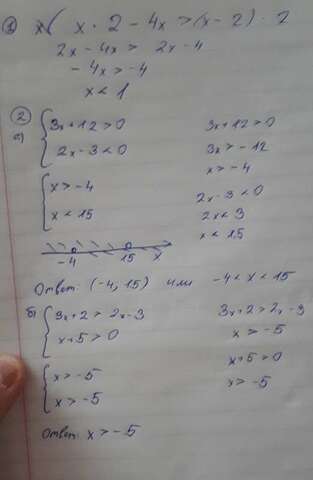 ① x( x · 2 - 4x > (x - 2) · 2
2x - 4x > 2x - 4
- 4x > -4
x < 1
②
а) { 3x + 12 > 0     3x + 12 > 0
2x - 3 < 0     3x > -12
x > -4
{ x > -4     2x - 3 < 0
x < 15     2x < 3
x < 1,5
-4     15     x
Ответ: (-4, 15) или -4 < x < 15
б) { 3x + 2 > 2x - 3     3x + 2 > 2x - 3
x + 5 > 0     x > -5
x + 5 > 0
{ x > -5     x > -5
x > -5
Ответ: x > -5